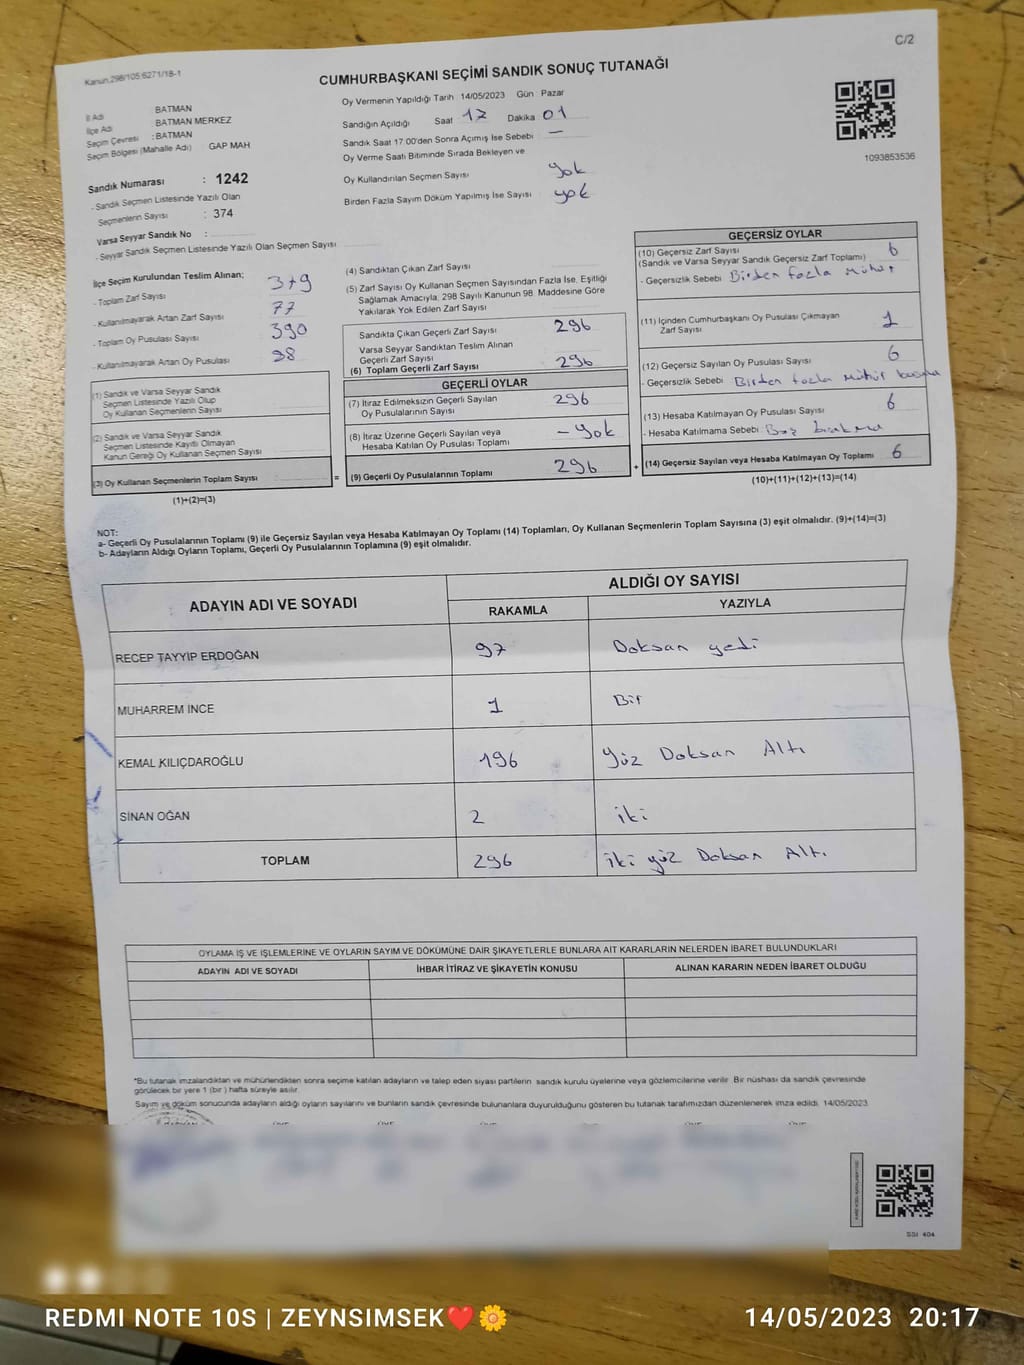 Kanun.298/105;6271/18-1
C/2
CUMHURBAŞKANI SEÇİMİ SANDIK SONUÇ TUTANAĞI
İl Adı BATMAN
İlçe Adı BATMAN MERKEZ
Seçim Çevresi : BATMAN
Seçim Bölgesi (Mahalle Adı) GAP MAH
Sandık Numarası : 1242
- Sandık Seçmen Listesinde Yazılı Olan
Seçmenlerin Sayısı : 374
Varsa Seyyar Sandık No :
- Seyyar Sandık Seçmen Listesinde Yazılı Olan Seçmen Sayısı
Oy Vermenin Yapıldığı Tarih 14/05/2023 Gün Pazar
Sandığın Açıldığı Saat 17 Dakika 01
Sandık Saat 17.00'den Sonra Açımış İse Sebebi —
Oy Verme Saati Bitiminde Sırada Bekleyen ve
Oy Kullandırılan Seçmen Sayısı yok
Birden Fazla Sayım Döküm Yapılmış İse Sayısı yok
1093853536
İlçe Seçim Kurulundan Teslim Alınan;
- Toplam Zarf Sayısı 379
- Kullanılmayarak Artan Zarf Sayısı 77
- Toplam Oy Pusulası Sayısı 390
- Kullanılmayarak Artan Oy Pusulası
(1) Sandık ve Varsa Seyyar Sandık
Seçmen Listesinde Yazılı Olup
Oy Kullanan Seçmenlerin Sayısı
(2) Sandık ve Varsa Seyyar Sandık
Seçmen Listesinde Kayıtlı Olmayan
Kanun Gereği Oy Kullanan Seçmen Sayısı
(3) Oy Kullanan Seçmenlerin Toplam Sayısı
(1)+(2)=(3)
=
(4) Sandıktan Çıkan Zarf Sayısı
(5) Zarf Sayısı Oy Kullanan Seçmen Sayısından Fazla İse, Eşitliği
Sağlamak Amacıyla, 298 Sayılı Kanunun 98. Maddesine Göre
Yakılarak Yok Edilen Zarf Sayısı
Sandıkta Çıkan Geçerli Zarf Sayısı 296
Varsa Seyyar Sandıktan Teslim Alınan
Geçerli Zarf Sayısı
(6) Toplam Geçerli Zarf Sayısı 296
GEÇERLİ OYLAR
(7) İtiraz Edilmeksizin Geçerli Sayılan
Oy Pusulalarının Sayısı 296
(8) İtiraz Üzerine Geçerli Sayılan veya
Hesaba Katılan Oy Pusulası Toplamı - yok
(9) Geçerli Oy Pusulalarının Toplamı 296
+
GEÇERSİZ OYLAR
(10) Geçersiz Zarf Sayısı
(Sandık ve Varsa Seyyar Sandık Geçersiz Zarf Toplamı) 6
- Geçersizlik Sebebi Birden fazla mühür
(11) İçinden Cumhurbaşkanı Oy Pusulası Çıkmayan
Zarf Sayısı 1
(12) Geçersiz Sayılan Oy Pusulası Sayısı 6
- Geçersizlik Sebebi Birden fazla mühür
(13) Hesaba Katılmayan Oy Pusulası Sayısı 6
- Hesaba Katılmama Sebebi Boş
(14) Geçersiz Sayılan veya Hesaba Katılmayan Oy Toplamı 6
(10)+(11)+(12)+(13)=(14)
NOT:
a- Geçerli Oy Pusulalarının Toplamı (9) ile Geçersiz Sayılan veya Hesaba Katılmayan Oy Toplamı (14) Toplamları, Oy Kullanan Seçmenlerin Toplam Sayısına (3) eşit olmalıdır. (9)+(14)=(3)
b- Adayların Aldığı Oyların Toplamı, Geçerli Oy Pusulalarının Toplamına (9) eşit olmalıdır.
ADAYIN ADI VE SOYADI
ALDIĞI OY SAYISI
RAKAMLA YAZIYLA
RECEP TAYYİP ERDOĞAN 97 Doksan yedi
MUHARREM İNCE 1 Bir
KEMAL KILIÇDAROĞLU 196 Yüz Doksan Altı
SİNAN OĞAN 2 iki
TOPLAM 296 iki yüz Doksan Altı
OYLAMA İŞ VE İŞLEMLERİNE VE OYLARIN SAYIM VE DÖKÜMÜNE DAİR ŞİKAYETLERLE BUNLARA AİT KARARLARIN NELERDEN İBARET BULUNDUKLARI
ADAYIN ADI VE SOYADI İHBAR İTİRAZ VE ŞİKAYETİN KONUSU ALINAN KARARIN NEDEN İBARET OLDUĞU
*Bu tutanak imzalandıktan ve mühürlendikten sonra seçime katılan adayların ve talep eden siyasi partilerin sandık kurulu üyelerine veya gözlemcilerine verilir. Bir nüshası da sandık çevresinde
görülecek bir yere 1 (bir) hafta süreyle asılır.
Sayım ve döküm sonucunda adayların aldığı oyların sayılarını ve bunların sandık çevresinde bulunanlara duyurulduğunu gösteren bu tutanak tarafımızdan düzenlenerek imza edildi. 14/05/2023
SSI 404
REDMI NOTE 10S | ZEYNSIMSEK❤️🌼
14/05/2023 20:17